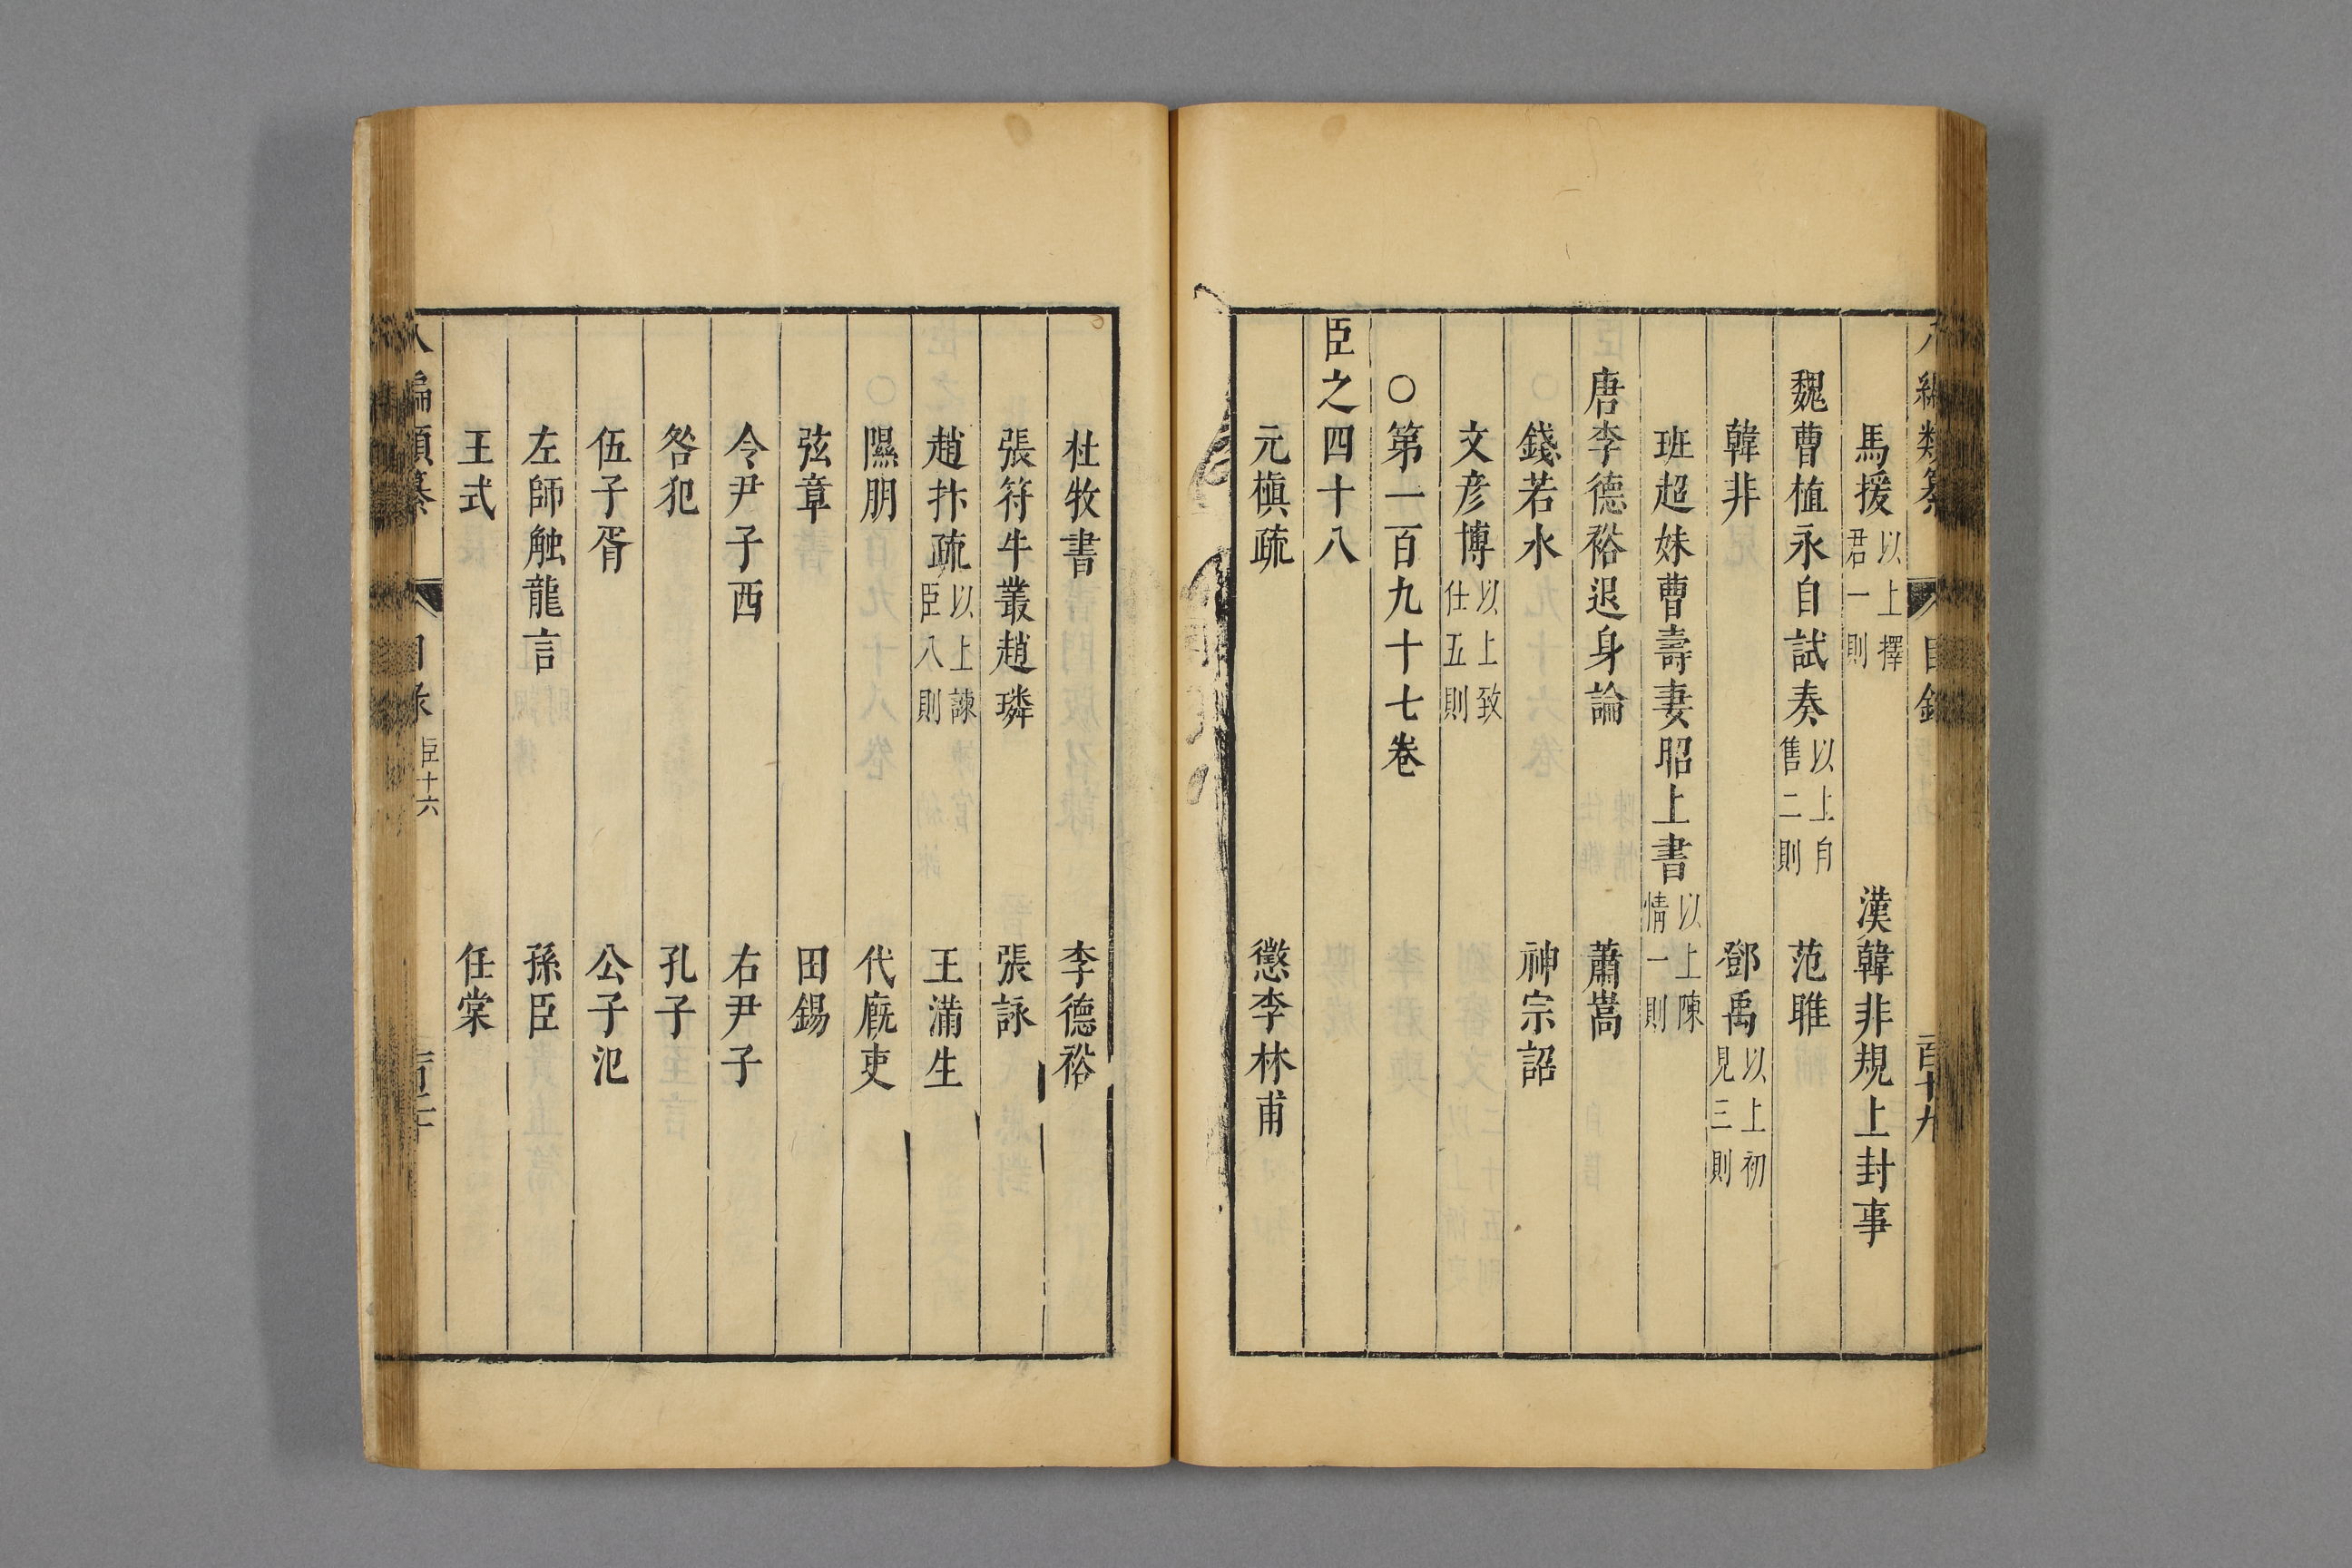 編類纂 目錄 百十九
馬援 以上擇君一則 漢韓非規上封事
魏曹植求自試奏 以上自售二則 范雎
韓非 鄧禹 以上初見三則
班超妹曹壽妻昭上書 以上陳情一則
唐李德裕退身論 蕭嵩
錢若水 神宗詔
文彥博 以上致仕五則
○第一百九十七卷
臣之四十八
元稹疏 懲李林甫
杜牧書 李德裕
張符牛叢趙璘 張詠
趙抃疏 以上諫臣八則 王滿生
隰朋 代廐吏
弦章 田錫
令尹子西 右尹子
咎犯 孔子
伍子胥 公子氾
左師触龍言 孫臣
王式 任棠
編類纂 目錄 臣十六